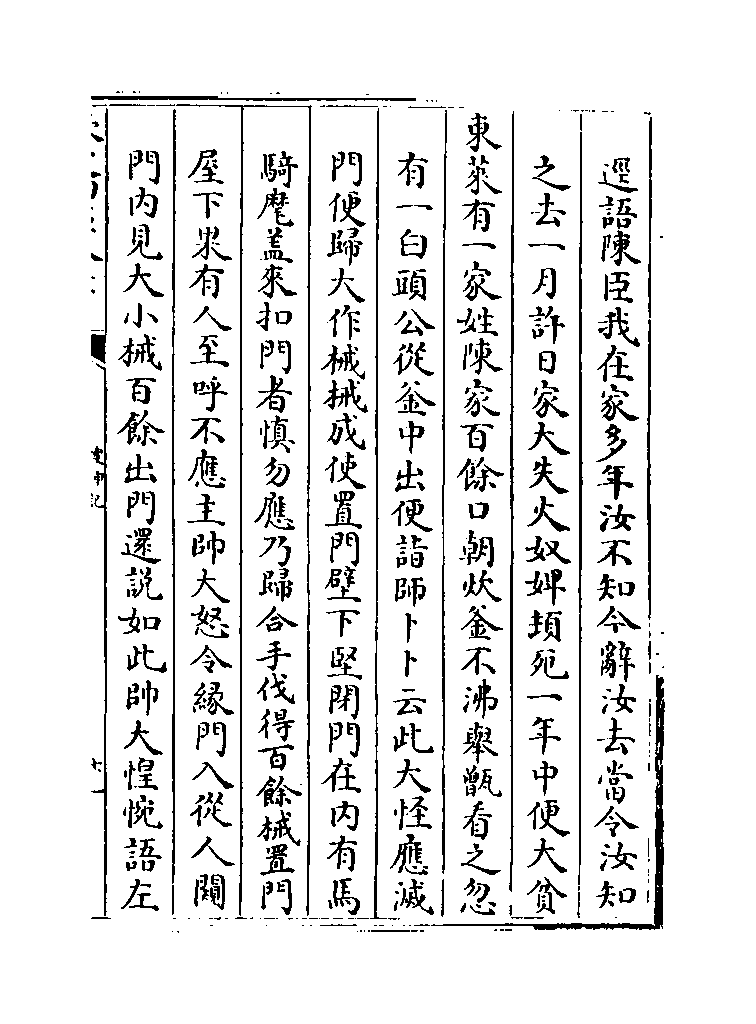 逕語陳臣我在家多年汝不知今辭汝去當令汝知
之去一月許日家大失火奴婢頓死一年中便大貧
東萊有一家姓陳家百餘口朝炊釜不沸舉甑看之忽
有一白頭公從釜中出便詣師卜卜云此大怪應滅
門便歸大作械械成使置門壁下堅閉門在内有馬
騎麾盖來扣門者慎勿應乃歸合手伐得百餘械置門
屋下果有人至呼不應主帥大怒令縁門入從人闚
門内見大小械百餘出門還説如此帥大惶惋語左